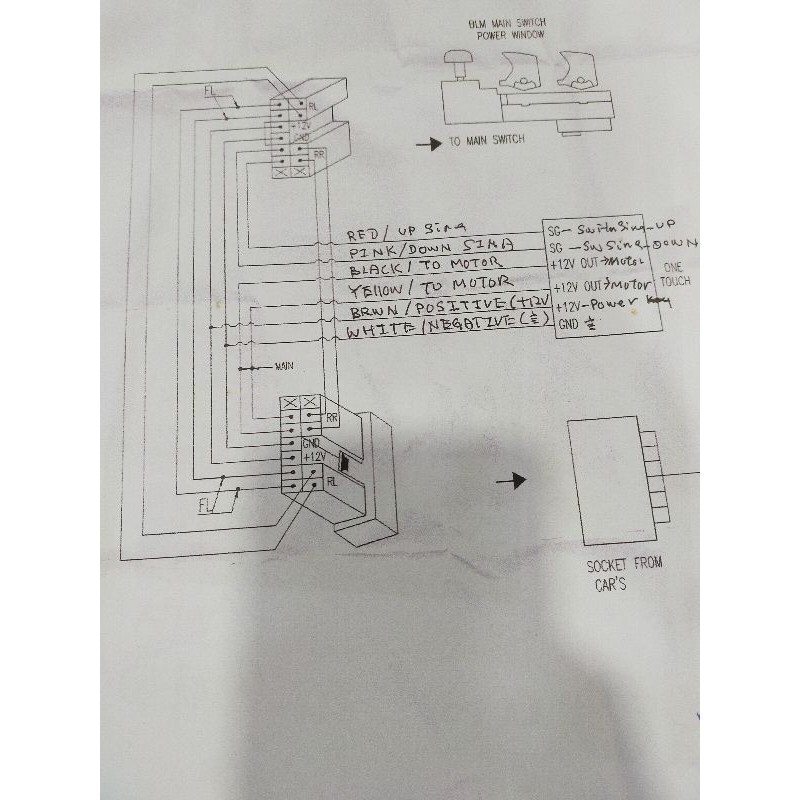 BLM MAIN SWITCH
POWER WINDOW
TO MAIN SWITCH
FL
RL
+12V
GND
RR
RED/ UP Sing
PINK/DOWN SINA
BLACK/ TO MOTOR
YEllOW/ TO MOTOR
BRWN/POSITIVE(+12V
WHITE/NEGATIVE(
SG-
-UP
SG
-DOWN
+12V OUT→Motor
+12V OUT→MOTOR
+12V-Power Key
GND
ONE
TOUCH
MAIN
RR
GND
+12V
RL
FL
SOCKET FROM
CAR'S